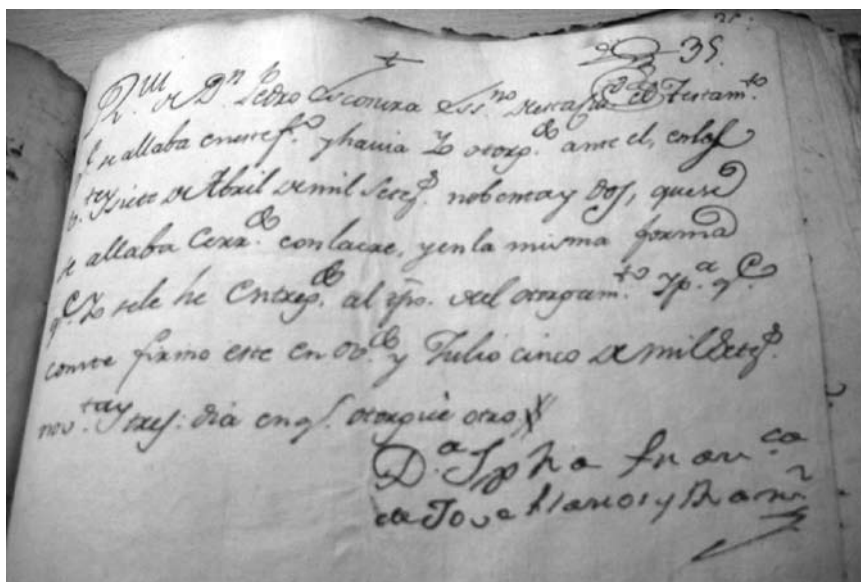 35.
R.vi de Dn Pedro Escontra Ess.no de esta Ciu.d el Testam.to
q.e se allaba en este of.o y havia Yo otorg.do ante el, en las
tey siete de Abril de mil Setez.s nobenta y dos, que se
se allaba Cerr.do con lacre, y en la misma forma
q.e Yo se le he Entreg.do al tpo. del otorgam.to Y p.a q.e
conste firmo este en Ov.do y Julio cinco de mil Setez.s
nov.ta y tres: dia en q.e otorgué otro
D.a Jpha Fran.ca
de Jove Llanos y Ram.z